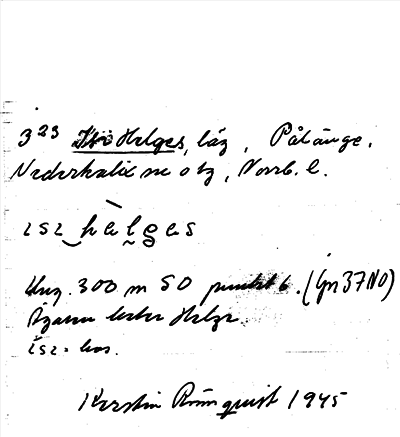 3²³ Isö Helges, läg, Pålänge.
Nederkalix sn o tg, Norrb. l.
ısı ha̅lges
Ung. 300 m SO punkt 6. (Gn 37 NO)
Ägaren heter Helge.
ısı = hos.
Kerstin Rönnquist 1945